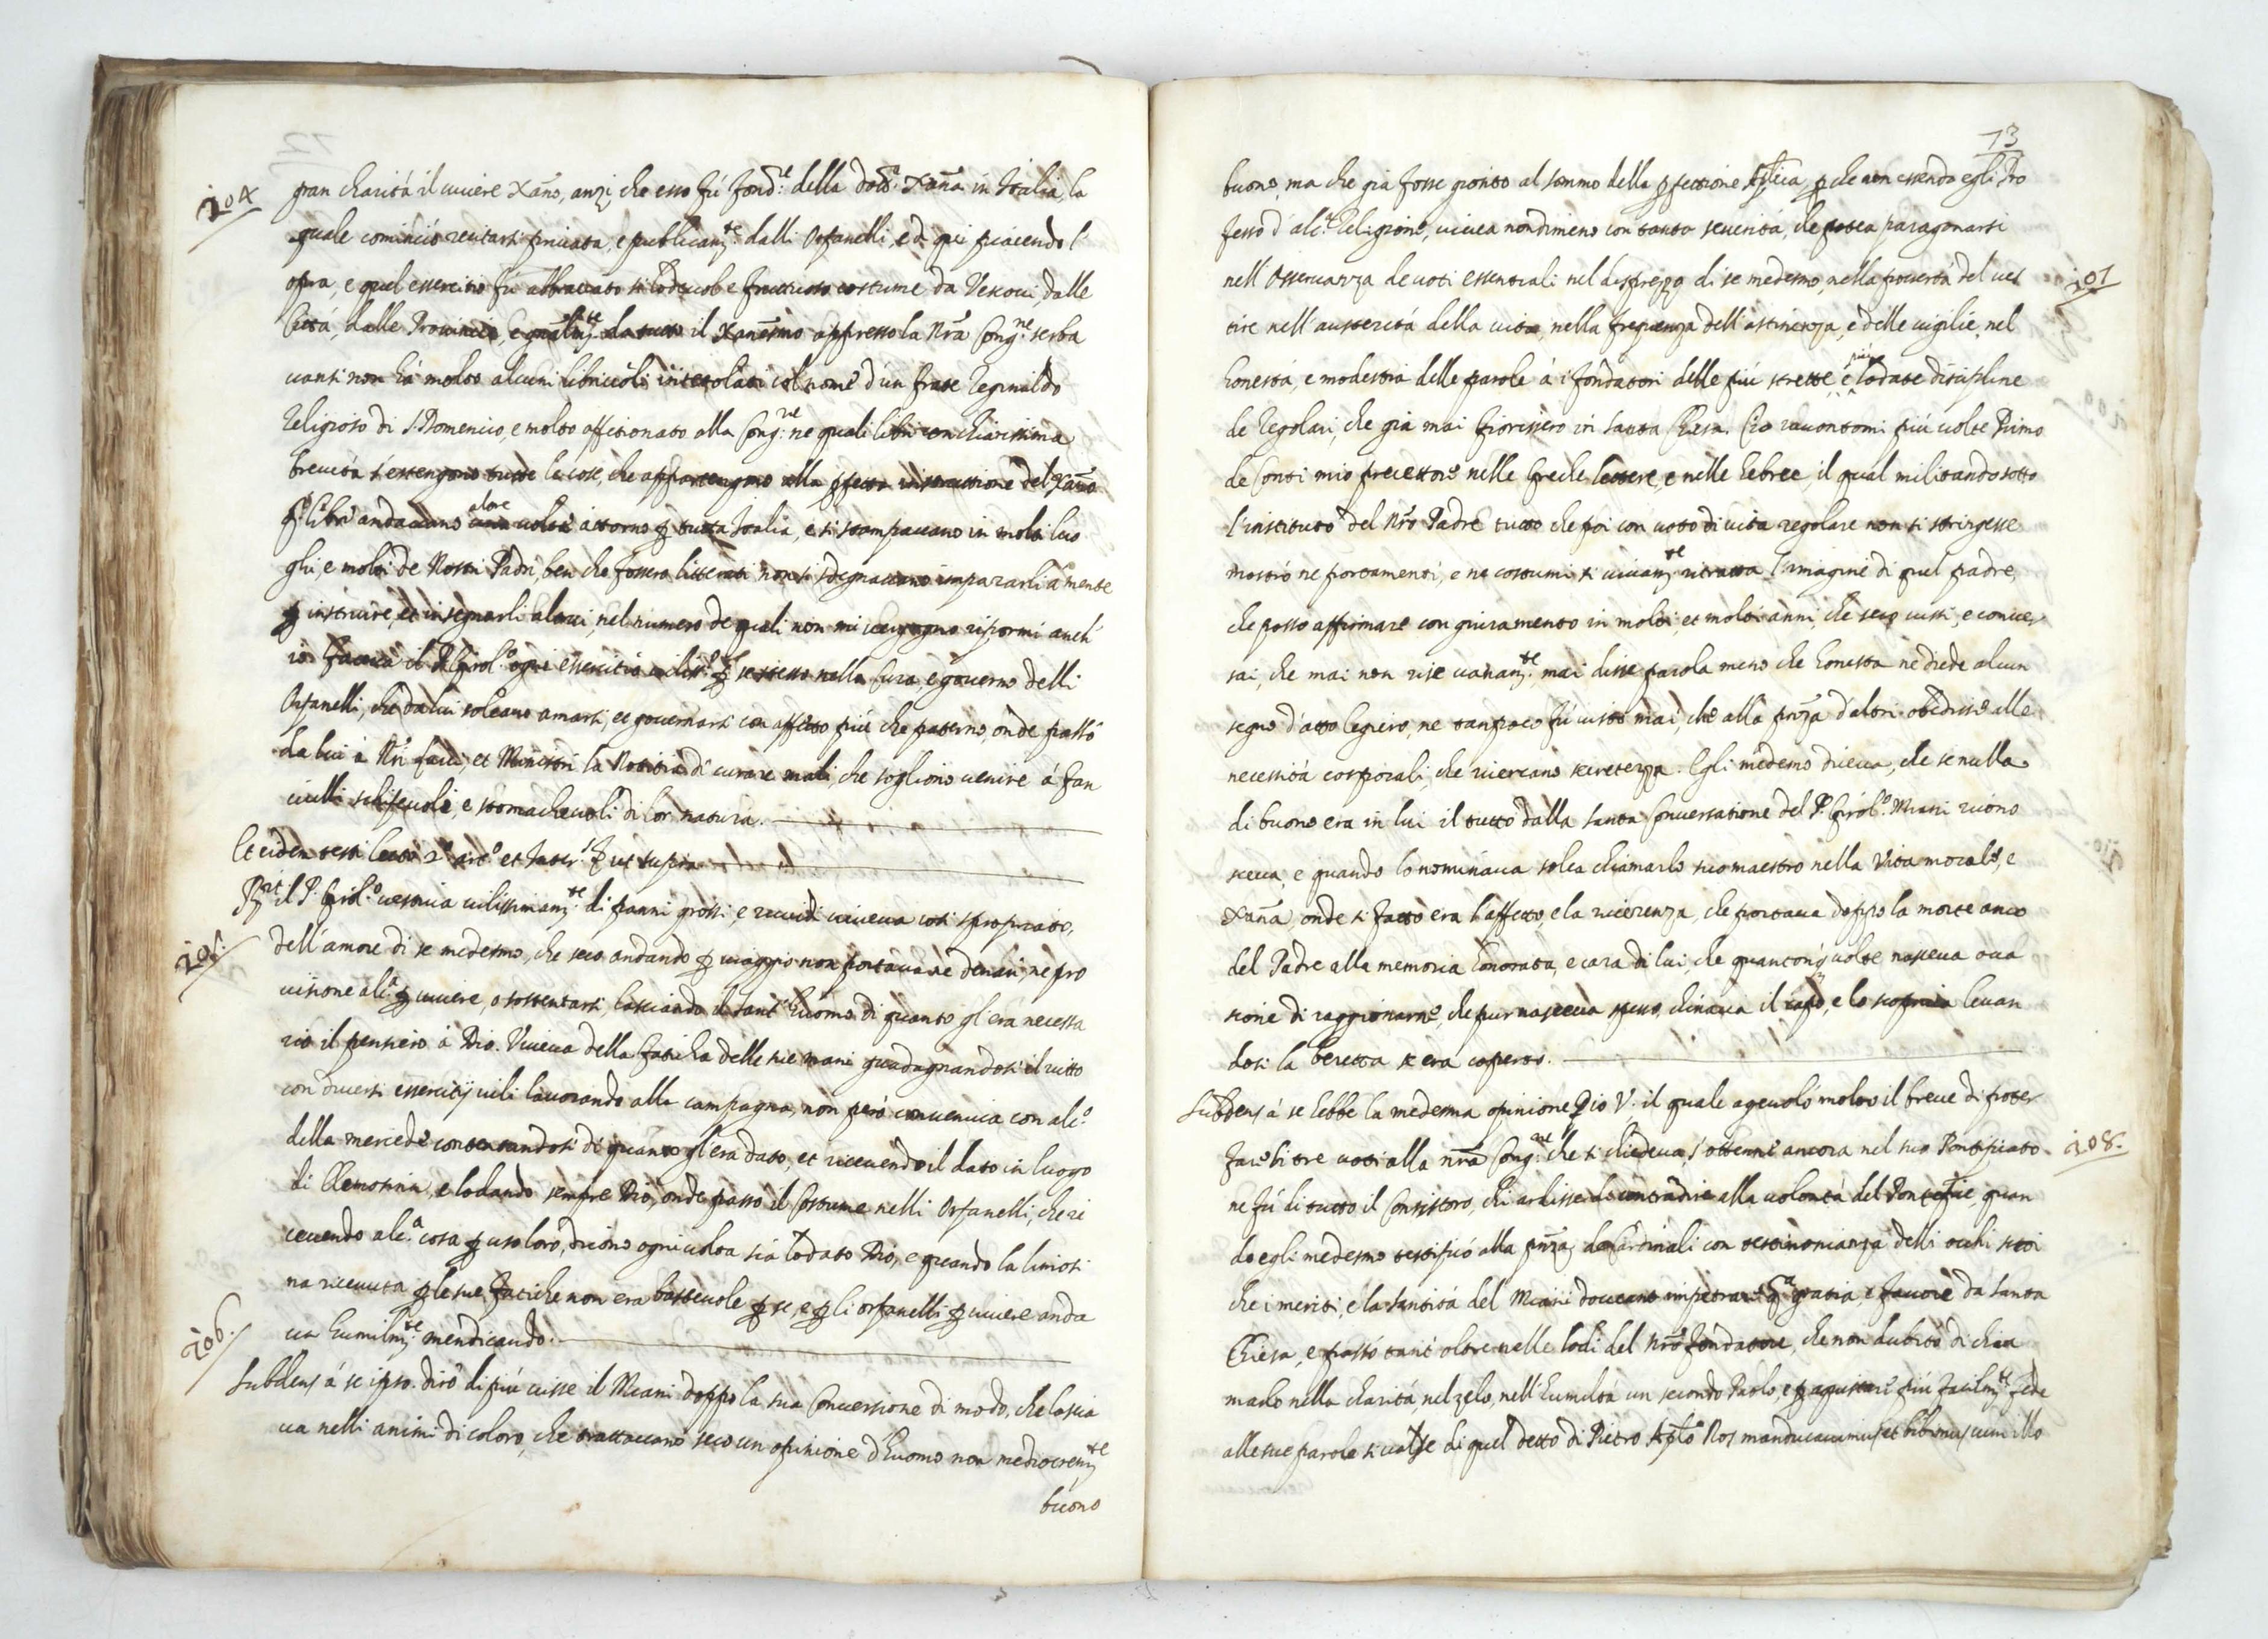 204
gran charità il viuere Xāno, anzi che esso fù fond.re della dott.a Xāna in Italia, la
quale cominciò recitarsi priuata, e publicam.te dalli Orfanelli, e di qui piacendo l'
opra, e quel essercitio fù abbracciato si lodeuol e fruttuoso costume da Vescoui dalle
Città, dalle Prouincie, e gñalm.te da tutto il Xanesmo appresso la Nrā Cong.ne serba
uansi non hà molto alcuni libriccioli intitolati col nome d'un frate Reginaldo
Religioso di S. Domenico, e molto affetionato alla Cong.ne ne quali libri con chiarissima
breuità s'estengono tutte le cose, che appartengono alla ꝑfetta instruttione del Xāno
q. libri andauano alore uolte attorno ꝑ tutta Italia, e si stampauano in molti luo
ghi, e molti de Nostri Padri, ben che fossero litterati non si sdegnauano impararli à mente
ꝑ instruire, et insegnarli altrui, nel numero de quali non mi uergogno ripormi anch'
io. Faceua il P. Girol.o ogni essercitio uiliss.o ꝑ se stesso nella cura, e gouerno delli
Orfanelli, che da lui soleano amarsi, et gouernarsi con affetto più che paterno, onde passò
da lui à Nri laici, et Ministri la Notitia di curare mali, che sogliono uenire à fan
ciulli schifeuoli, e stomacheuoli di lor natura.
Et eidem testi lecto 2.o art.o et Inter.r ꝑ ut supra
205.
R.it il P. Girol.o uestiua uilissimam.te di panni grossi, e ruuidi uiueua così spropriato,
dell'amore di se medesmo, che seco andando ꝑ uiaggio non portaua ne denari, ne pro
uisione alc.a ꝑ uiuere, o sostentarsi, lasciando il sant' huomo di quanto gl'era necessa
rio il pensiero à Dio. Viueua della fatica delle sue mani guadagnandosi il uitto
con diuersi essercitij uili lauorando alla campagna, non però conueniua con alc.o
della mercede contentandosi di quanto gl'era dato, et riceuendo il dato in luogo
di Elemosina, e lodando sempre Dio, onde passò il Costume nelli Orfanelli, che ri
ceuendo alc.a cosa ꝑ uso loro, dicono ogni uolta sià lodato Dio, e quando la limosi
na riceuuta ꝑ le sue fatiche non era basteuole ꝑ se, e ꝑ li orfanelli ꝑ uiuere anda
ua humilm.te mendicando.
206.
Subdens à se ipso. dirò di più uisse il Miani doppo la sua Conuersione di modo, che lascia
ua nelli animi di coloro, che trattauano seco un opinione d'huomo non mediocrem.te
buono
73
buono, ma che già fosse gionto al sommo della ꝑfettione Aplica, ꝑche non essendo egli Pro
fesso d'alc.a Religione, uiuea nondimeno con tanta seuerità, che potea paragonarsi
207
nell'Osseruanza de uoti essentiali nel disprezzo di se medesmo, nella pouertà del ues
tire nell'austerità della uita, nella frequenza dell'astinenza, e delle uigilie, nel
honestà, e modestia delle parole à i fondatori delle più strette, e più lodate discipline
de Regolari, che già mai fiorissero in Santa Chiesa. Cio racontomi più uolte Primo
de Conti mio precettore nelle Greche lettere, e nelle hebree, il qual militando sotto
l'instituto del Nrō Padre tutto che poi con uoto di uita regolare non si stringesse
mostrò ne portamenti, e ne costumi si uiuam.te ritratta l'imagine di quel padre,
che posso affirmare con giuramento in molti, et molti anni, che seco uissi, e conuer
sai, che mai non rise uanam.te mai disse parola meno che honesta ne diede alcun
segno d'atto legiero, ne tanpoco fù uisto mai, che alla pñza d'altri obedisse alle
necessità corporali, che ricercano secretezza. Egli medesmo diceua, che se nulla
di buono era in lui il tutto dalla santa Conuersatione del P. Girol.o Miani ricono
sceua, e quando lo nominaua solea chiamarlo suo maestro nella Vita morale, e
Xāna, onde si fatto era l'affetto, e la riuerenza, che portaua doppo la morte anco
del Padre alla memoria honorata, e cara di lui, che quantonq. uolte nasceua oca
sione di raggionarne, che pur nasceua spesso, chinaua il capo, e lo scopriua leuan
dosi la beretta se era coperto.
Subdens à se hebbe la medesma opinione Pio V. il quale ageuolò molto il breue di poter
208.
far li tre uoti alla nrā Cong.ne che si chiedeua, s'ottenne ancora nel suo Pontificato
ne fù di tutto il Consistoro, chi ardisse di contradire alla uolontà del Pontefice, quan
do egli medesmo testificò alla pñza de Cardinali con testimonianza delli occhi suoi
che i meriti, e la Santità del Miani doueano impetrar q.a gratia, e fauore da Santa
Chiesa, e passò tant'oltre nelle lodi del Nrō fondatore, che non dubitò di chia
marlo nella charità, nel zelo, nell'humiltà un secondo Paolo, e ꝑ aquistare più facilm.te fede
alle sue parole si ualse di quel detto di Pietro Aplo Nos manducauimus, et bibimus cum illo